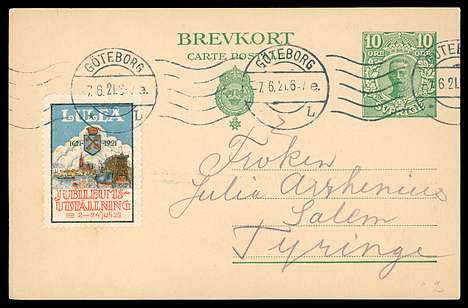 BREVKORT
CARTE POSTALE
GÖTEBORG
7.6.21.6-7 e.
L
GÖTEBORG
7.6.21.6-7 e.
L
10 10
ÖRE
SVERIGE
LULEÅ
1621 1921
JUBILEUMS-
UTSTÄLLNING
2-24 juli
Fröken
Julia Arrhenius
Salem
Tyringe